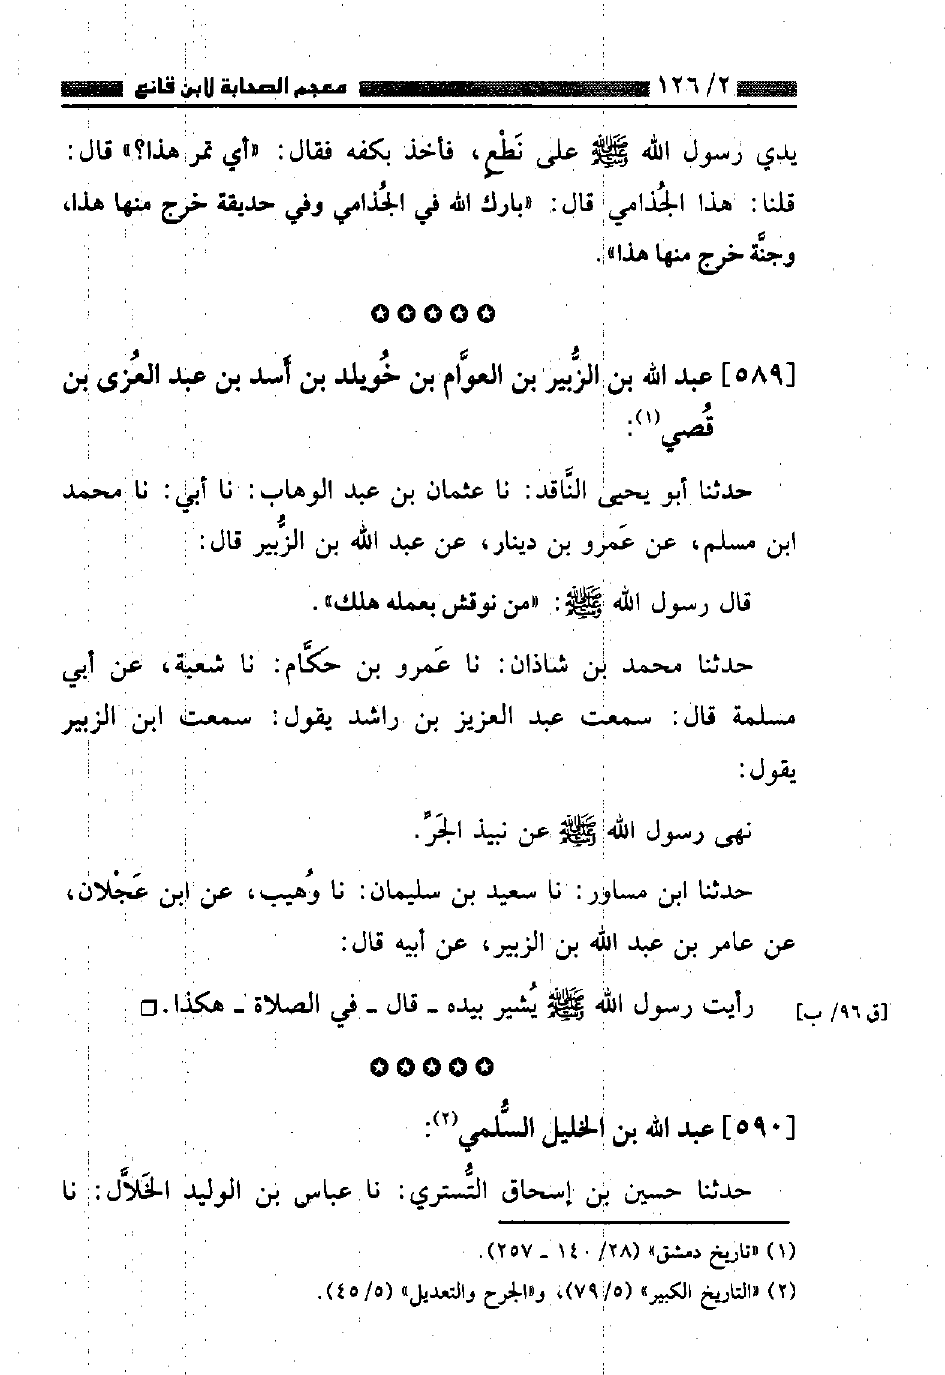 ٢/ ١٢٦ معجم الصحابة لابن قانع
يدي رسول الله ﷺ على نَطْعٍ، فأخذ بكفه فقال: «أي تمر هذا؟» قال:
قلنا: هذا الجُذامي قال: «بارك الله في الجُذامي وفي حديقة خرج منها هذا،
وجنَّة خرج منها هذا».
[٥٨٩] عبد الله بن الزُّبير بن العوَّام بن خُويلد بن أَسد بن عبد العُزى بن
قُصي(١):
حدثنا أبو يحيى النَّاقد: نا عثمان بن عبد الوهاب: نا أبي: نا محمد
ابن مسلم، عن عَمرو بن دينار، عن عبد الله بن الزُّبير قال:
قال رسول الله ﷺ: «من نوقش بعمله هلك».
حدثنا محمد بن شاذان: نا عَمرو بن حكَّام: نا شعبة، عن أبي
مسلمة قال: سمعت عبد العزيز بن راشد يقول: سمعت ابن الزبير
يقول:
نهى رسول الله ﷺ عن نبيذ الجَرِّ.
حدثنا ابن مساور: نا سعيد بن سليمان: نا وُهيب، عن ابن عَجْلان،
عن عامر بن عبد الله بن الزبير، عن أبيه قال:
رأيت رسول الله ﷺ يُشير بيده ـ قال ـ في الصلاة ـ هكذا. □ [ق ٩٦/ ب]
[٥٩٠] عبد الله بن الخليل السُّلمي(٢):
حدثنا حسين بن إسحاق التُّستري: نا عباس بن الوليد الخَلاَّل: نا
(١) «تاريخ دمشق» (٢٨/ ١٤٠ ـ ٢٥٧).
(٢) «التاريخ الكبير» (٥/ ٧٩)، و«الجرح والتعديل» (٥/ ٤٥).